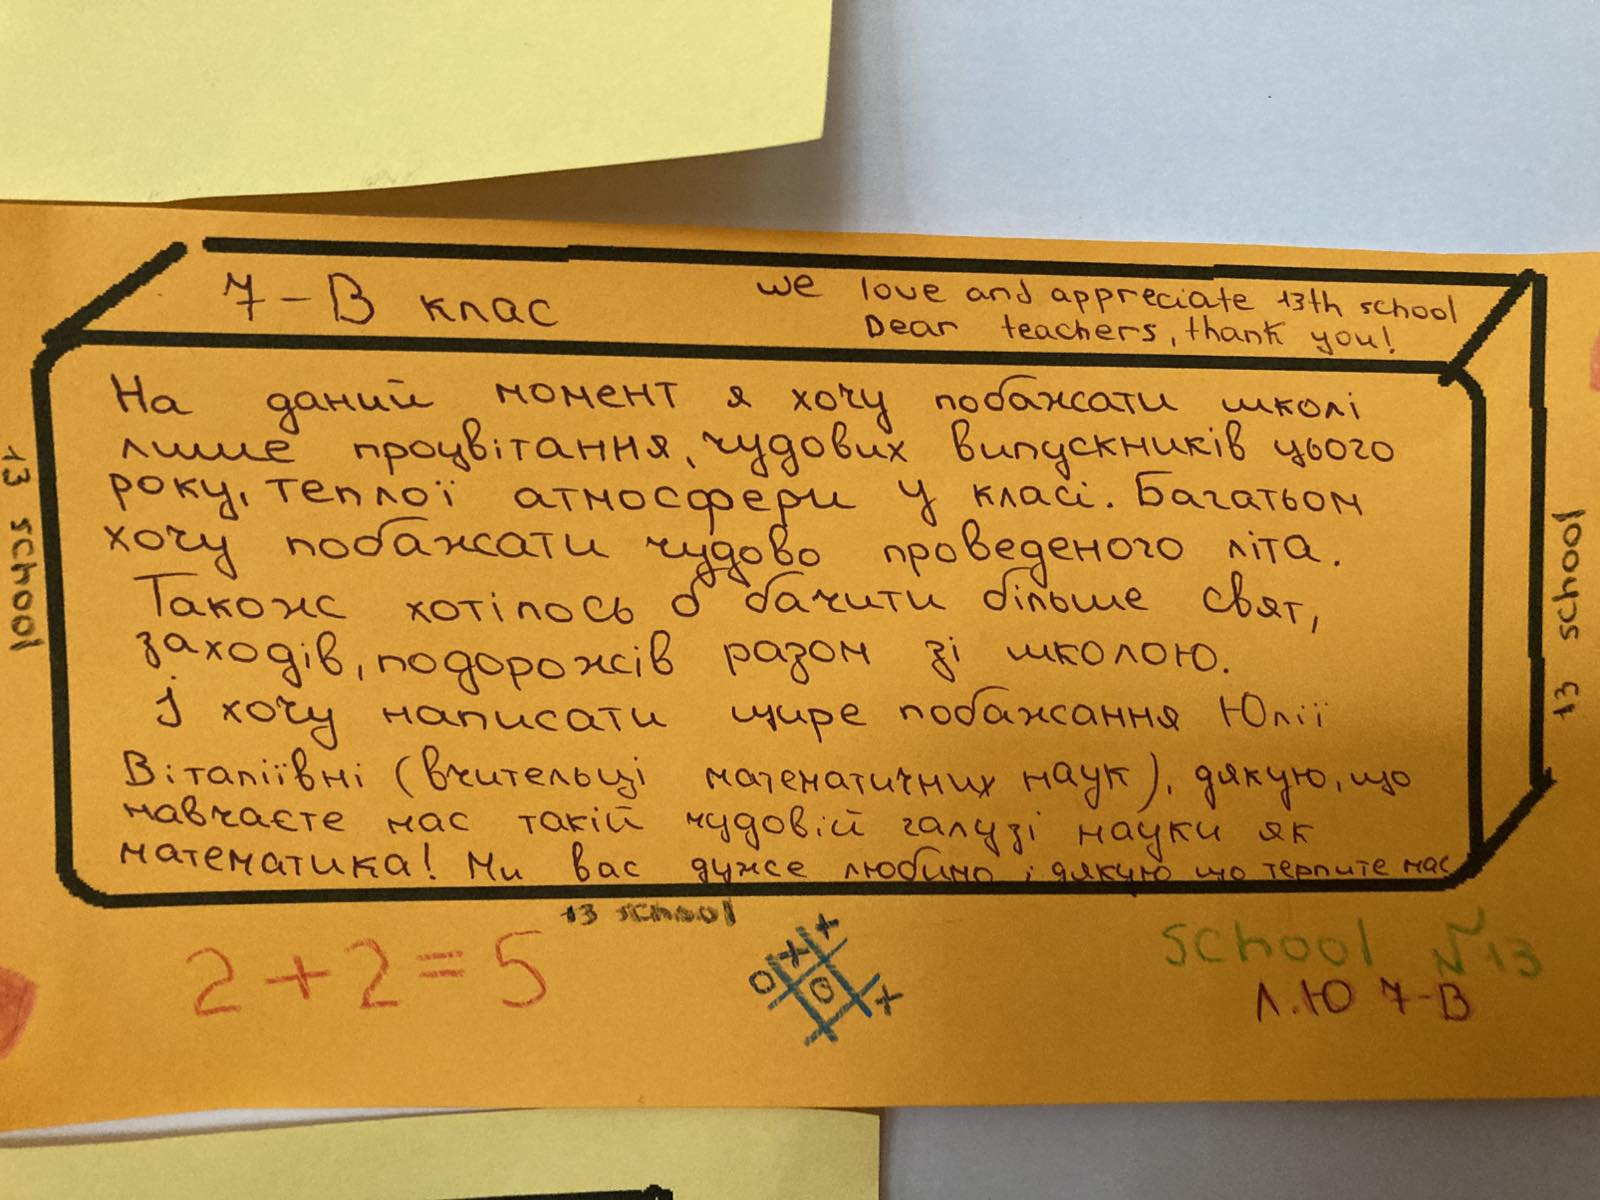 7-В клас
we love and appreciate 13th school
Dear teachers, thank you!
На даний момент я хочу побажати школі
лише процвітання, чудових випускників цього
року, теплої атмосфери у класі. Багатьом
хочу побажати чудово проведеного літа.
Також хотілось б бачити більше свят,
заходів, подорожів разом зі школою.
І хочу написати щире побажання Юлії
Віталіївні (вчительці математичних наук), дякую, що
навчаєте нас такій чудовій галузі науки як
математика! Ми вас дуже любимо і дякую що терпите нас
13 school
13 school
13 school
2+2=5
O X +
O
+
school №13
Л.Ю 7-В